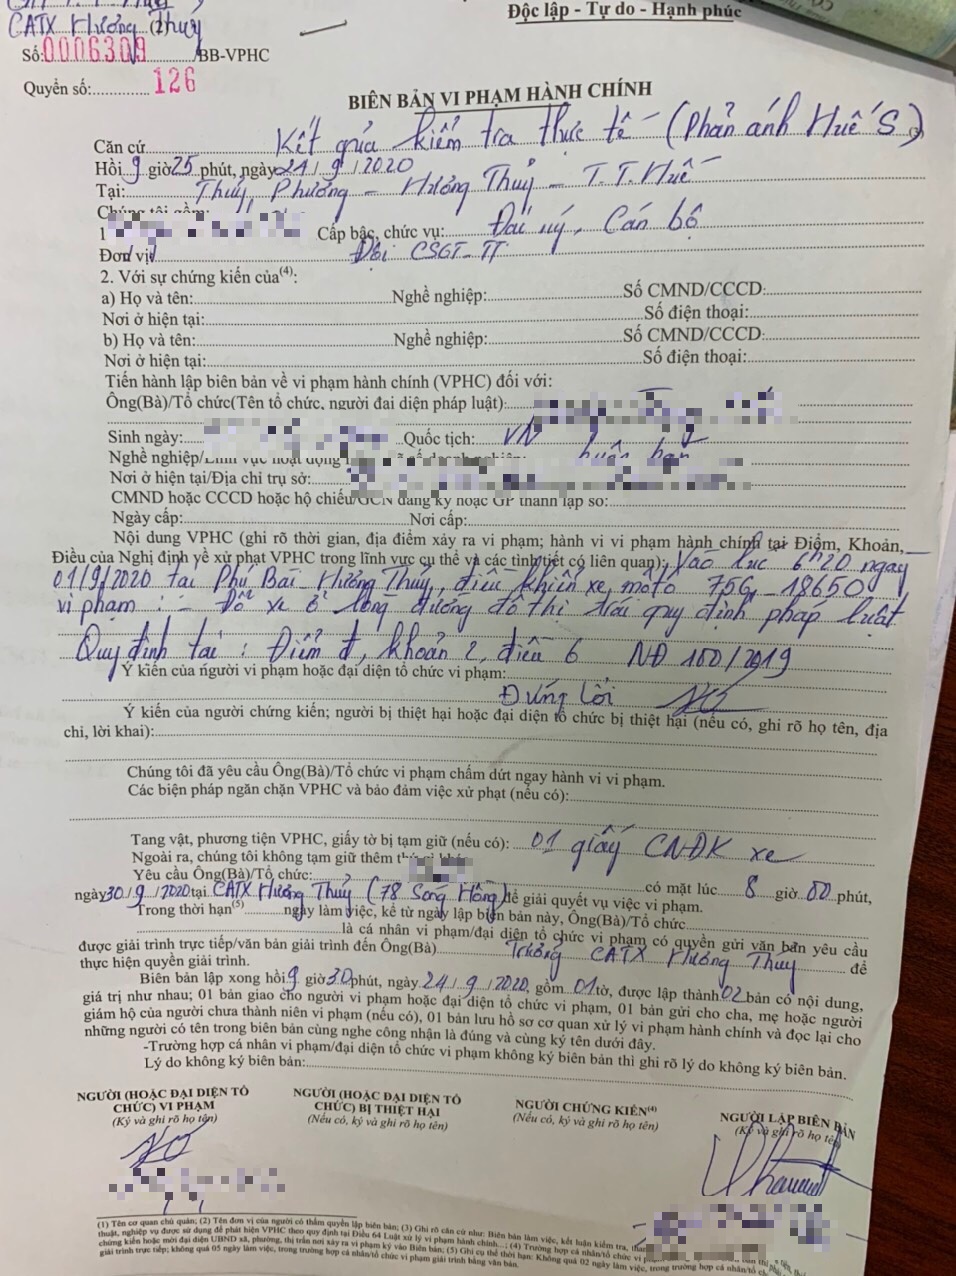 CATX Hương Thủy
Độc lập - Tự do - Hạnh phúc
Số: 0006309/BB-VPHC
Quyển số: 126
BIÊN BẢN VI PHẠM HÀNH CHÍNH
Căn cứ Kết quả kiểm tra thực tế (Phản ánh Huế S) (3)
Hồi 9 giờ 25 phút, ngày 24/9/2020
Tại: Thủy Phương - Hương Thủy - T.T.Huế
Chúng tôi gồm:
1 Cấp bậc, chức vụ: Đại úy, Cán bộ
Đơn vị Đội CSGT-TT
2. Với sự chứng kiến của(4):
a) Họ và tên: Nghề nghiệp: Số CMND/CCCD:
Nơi ở hiện tại: Số điện thoại:
b) Họ và tên: Nghề nghiệp: Số CMND/CCCD:
Nơi ở hiện tại: Số điện thoại:
Tiến hành lập biên bản về vi phạm hành chính (VPHC) đối với:
Ông(Bà)/Tổ chức(Tên tổ chức, người đại diện pháp luật):
Sinh ngày: Quốc tịch: VN
Nghề nghiệp/Lĩnh vực hoạt động
Nơi ở hiện tại/Địa chỉ trụ sở:
CMND hoặc CCCD hoặc hộ chiếu/GCN đăng ký hoặc GP thành lập số:
Ngày cấp: Nơi cấp:
Nội dung VPHC (ghi rõ thời gian, địa điểm xảy ra vi phạm; hành vi vi phạm hành chính tại Điểm, Khoản,
Điều của Nghị định về xử phạt VPHC trong lĩnh vực cụ thể và các tình tiết có liên quan): Vào lúc 6h20 ngày
01/9/2020 tại Phú Bài - Hương Thủy, điều khiển xe môtô 75G1-18650
vi phạm: - Đỗ xe ở lòng đường đô thị trái quy định pháp luật
Quy định tại: Điểm đ, khoản 2, điều 6 NĐ 100/2019
Ý kiến của người vi phạm hoặc đại diện tổ chức vi phạm:
Đúng lỗi
Ý kiến của người chứng kiến; người bị thiệt hại hoặc đại diện tổ chức bị thiệt hại (nếu có, ghi rõ họ tên, địa
chỉ, lời khai):
Chúng tôi đã yêu cầu Ông(Bà)/Tổ chức vi phạm chấm dứt ngay hành vi vi phạm.
Các biện pháp ngăn chặn VPHC và bảo đảm việc xử phạt (nếu có):
Tang vật, phương tiện VPHC, giấy tờ bị tạm giữ (nếu có): 01 giấy CNĐK xe
Ngoài ra, chúng tôi không tạm giữ thêm
Yêu cầu Ông(Bà)/Tổ chức: có mặt lúc 8 giờ 00 phút,
ngày 30/9/2020 tại CATX Hương Thủy (78 Sóng Hồng) để giải quyết vụ việc vi phạm.
Trong thời hạn(5) ngày làm việc, kể từ ngày lập biên bản này, Ông(Bà)/Tổ chức
là cá nhân vi phạm/đại diện tổ chức vi phạm có quyền gửi văn bản yêu cầu
được giải trình trực tiếp/văn bản giải trình đến Ông(Bà) Trưởng CATX Hương Thủy để
thực hiện quyền giải trình.
Biên bản lập xong hồi 9 giờ 30 phút, ngày 24/9/2020, gồm 01 tờ, được lập thành 02 bản có nội dung,
giá trị như nhau; 01 bản giao cho người vi phạm hoặc đại diện tổ chức vi phạm, 01 bản gửi cho cha, mẹ hoặc người
giám hộ của người chưa thành niên vi phạm (nếu có), 01 bản lưu hồ sơ cơ quan xử lý vi phạm hành chính và đọc lại cho
những người có tên trong biên bản cùng nghe công nhận là đúng và cùng ký tên dưới đây.
-Trường hợp cá nhân vi phạm/đại diện tổ chức vi phạm không ký biên bản thì ghi rõ lý do không ký biên bản.
Lý do không ký biên bản:
NGƯỜI (HOẶC ĐẠI DIỆN TỔ
CHỨC) VI PHẠM
(Ký và ghi rõ họ tên)
NGƯỜI (HOẶC ĐẠI DIỆN TỔ
CHỨC) BỊ THIỆT HẠI
(Nếu có, ký và ghi rõ họ tên)
NGƯỜI CHỨNG KIẾN(4)
(Nếu có, ký và ghi rõ họ tên)
NGƯỜI LẬP BIÊN BẢN
(Ký và ghi rõ họ tên)
(1) Tên cơ quan chủ quản; (2) Tên đơn vị của người có thẩm quyền lập biên bản; (3) Ghi rõ căn cứ như: Biên bản làm việc, kết luận kiểm tra,
thuật, nghiệp vụ được sử dụng để phát hiện VPHC theo quy định tại Điều 64 Luật xử lý vi phạm hành chính...; (4) Trường hợp cá nhân/tổ chức vi
chứng kiến hoặc mời đại diện UBND xã, phường, thị trấn nơi xảy ra vi phạm ký vào Biên bản; (5) Ghi cụ thể thời hạn: Không quá 02 ngày làm việc, trong trường hợp cá nhân/tổ chức
giải trình trực tiếp; không quá 05 ngày làm việc, trong trường hợp cá nhân/tổ chức vi phạm giải trình bằng văn bản.